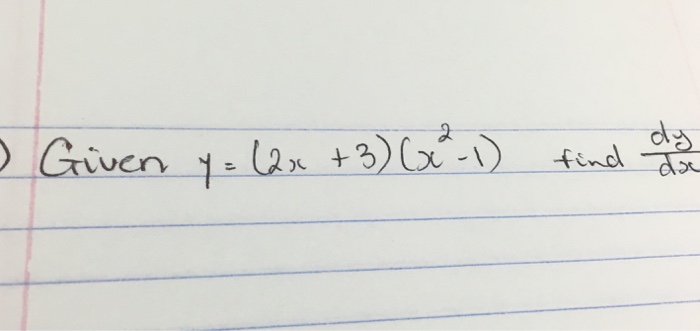 ) Given y = (2x + 3)(x² - 1) find dy/dx